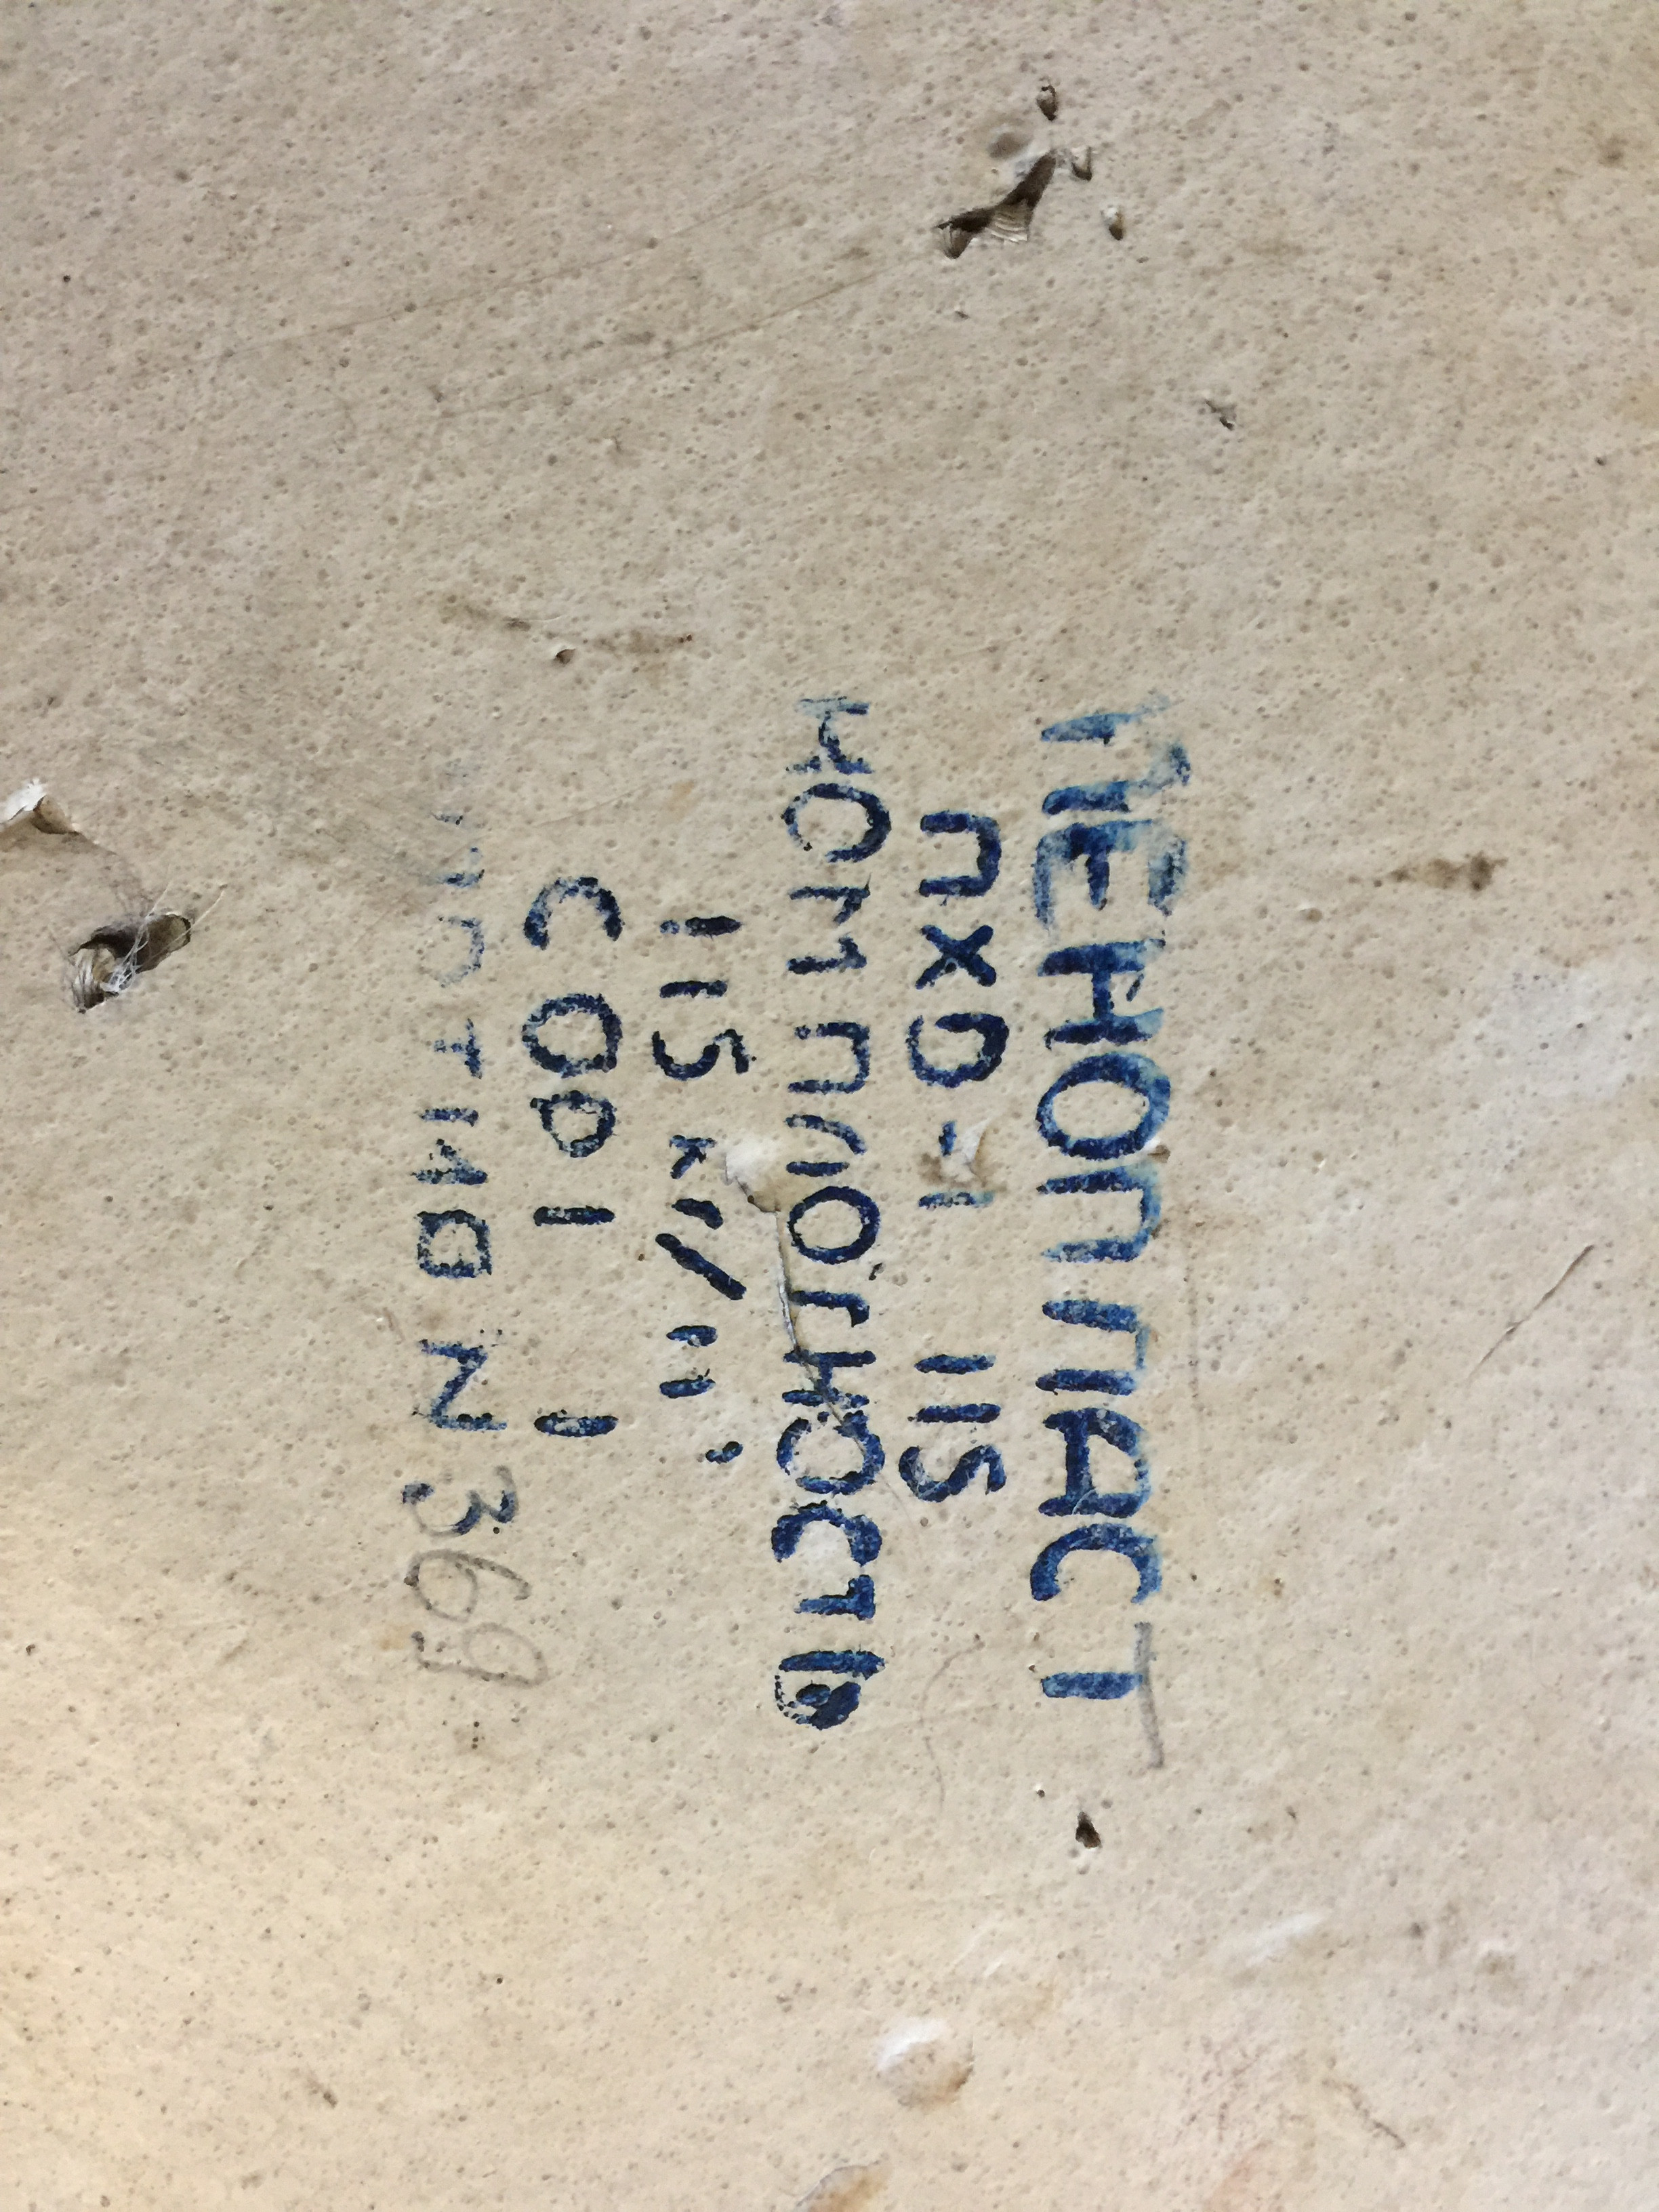 ПЕНОПЛАСТ
ПХВ-1 115
КСМ ПЛОТНОСТЬ
115 КГ/М³
СОРТ 1
ПАРТИЯ N 369